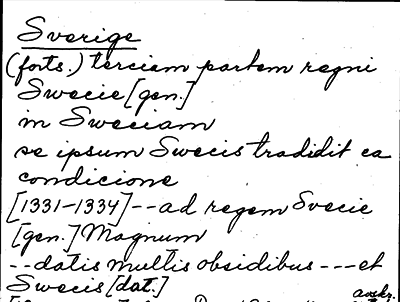 Sverige
(forts.) terciam partem regni
Swecie [gen.]
in Sweciam
se ipsum Swecis tradidit ea
condicione
[1331-1334] -- ad regem Svecie
[gen.] Magnum
-- datis multis obsidibus --- et
Swecis [dat.]
avskr.